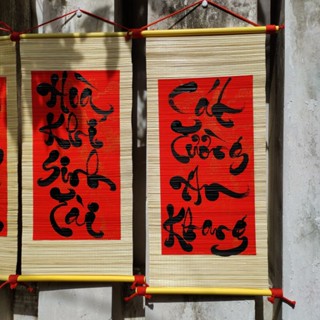 Hoà
Khí
Sinh
Tài
Cát
Tường
An
Khang